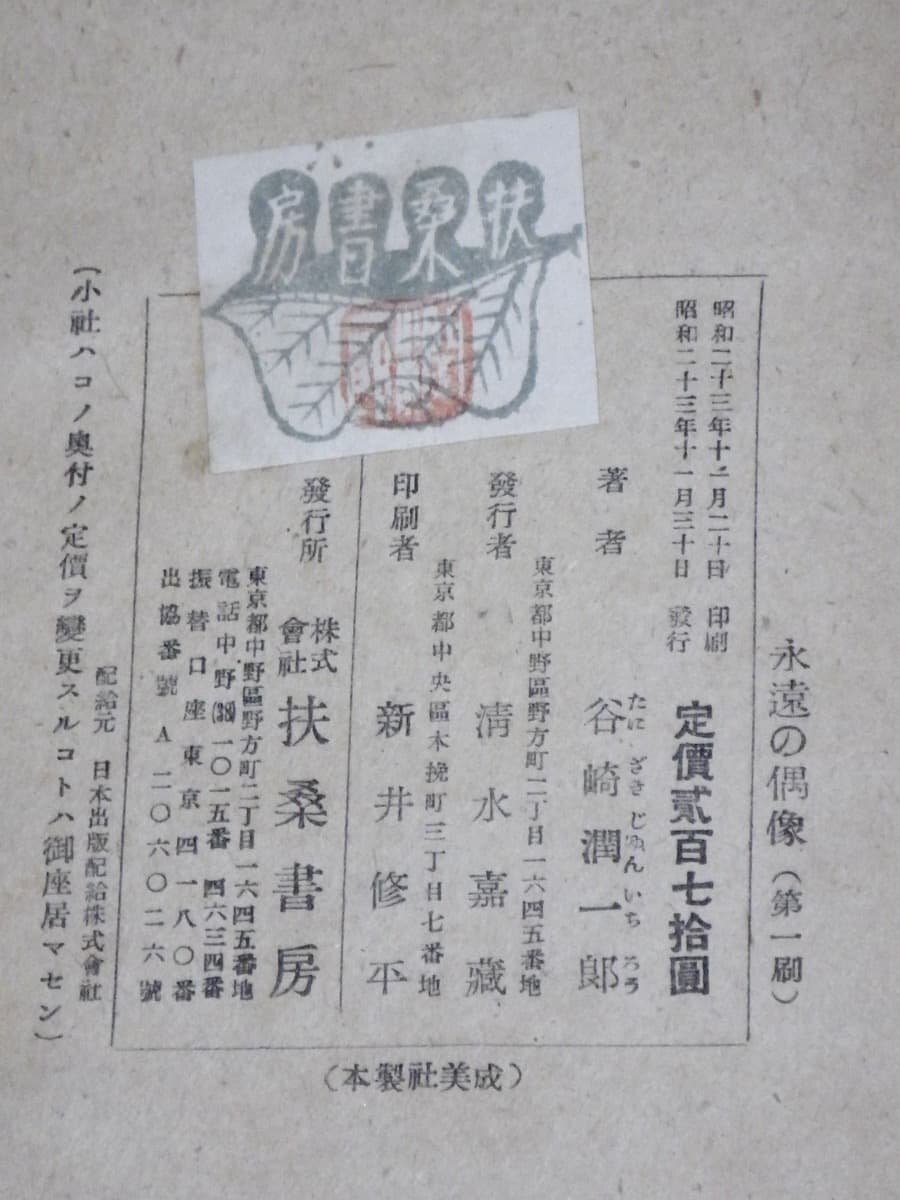 扶桑書房
永遠の偶像(第一刷)
昭和二十三年十一月二十日 印刷
昭和二十三年十一月三十日 發行
定價貳百七拾圓
著者 谷崎潤一郎
たにざきじゅんいちろう
東京都中野區野方町二丁目一六四五番地
發行者 淸水嘉藏
東京都中央區木挽町三丁目七番地
印刷者 新井修平
發行所 株式會社 扶桑書房
東京都中野區野方町二丁目一六四五番地
電話中野(38)一〇一五番 四六三四番
振替口座東京四一八〇番
出協番號A二〇六〇二六號
配給元 日本出版配給株式會社
(小社ハコノ奥付ノ定價ヲ變更スルコトハ御座居マセン)
(成美社製本)